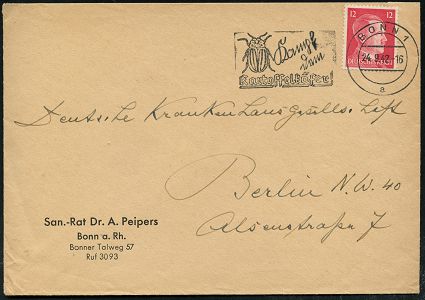 Kampf
dem
Kartoffelkäfer
12 12
DEUTSCHES REICH
BONN 1
-16
a
Deutsche Krankenhausgesellsch.
Berlin N.W. 40
Alsenstraße 7
San.-Rat Dr. A. Peipers
Bonn a. Rh.
Bonner Talweg 57
Ruf 3093